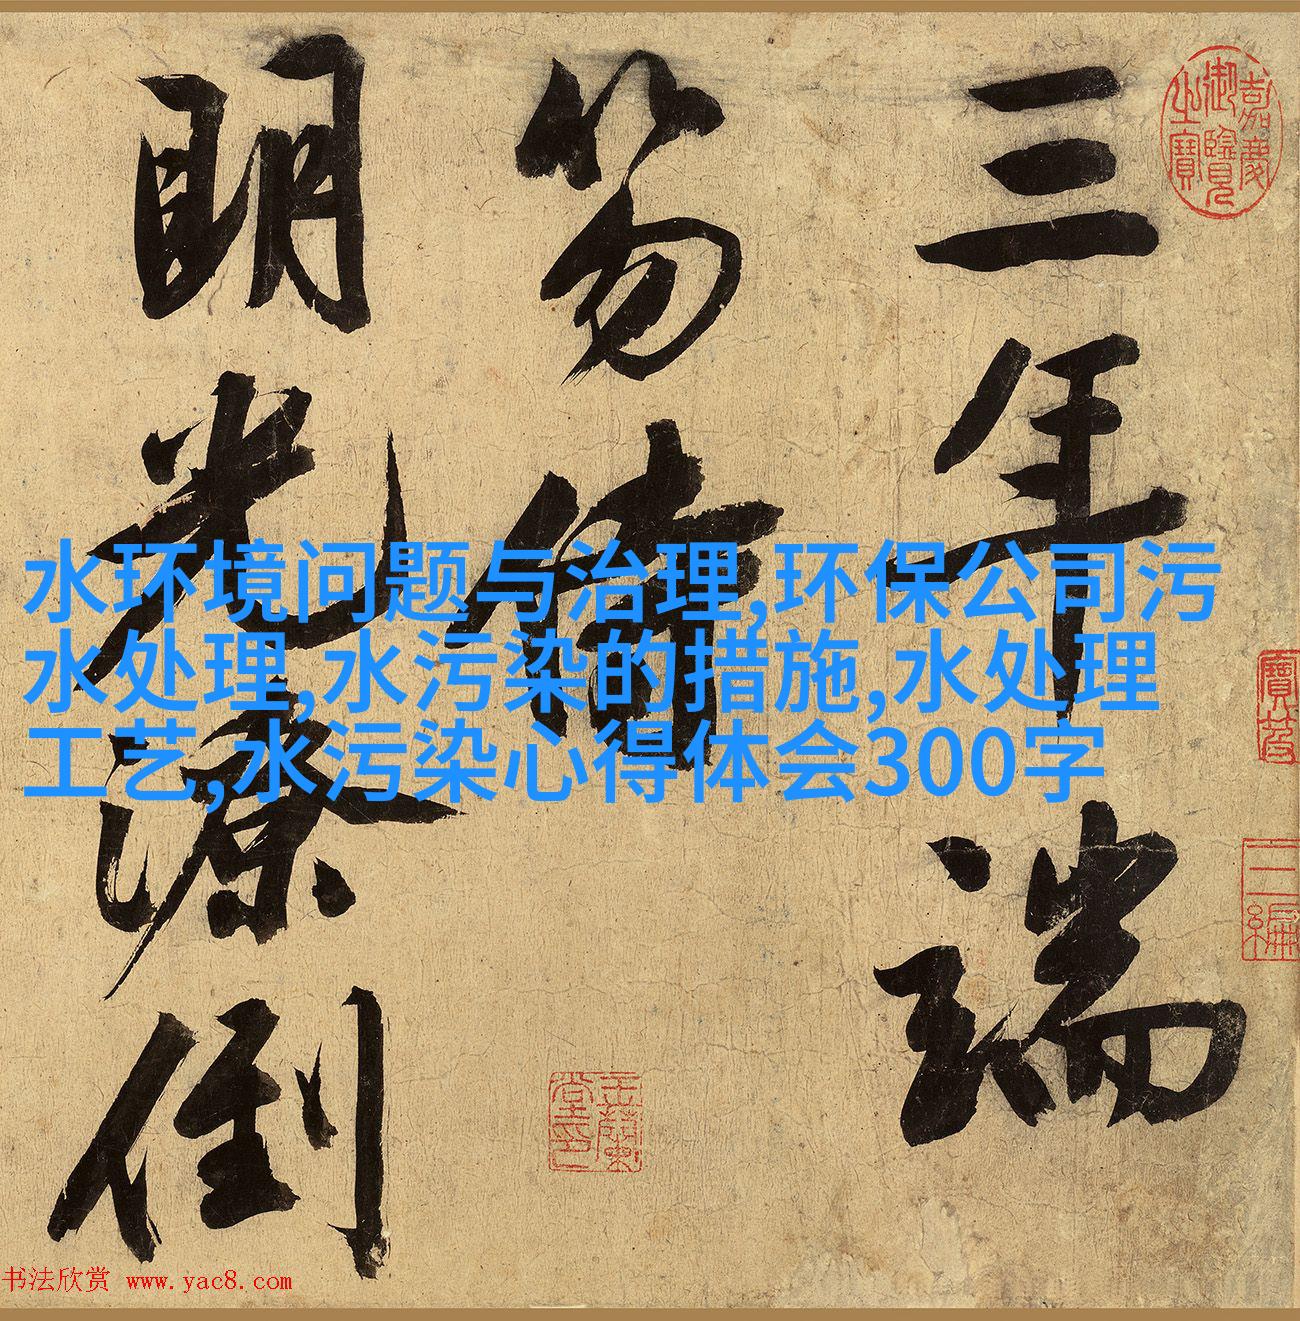 三年端
笏侍
明光潦倒
嘉慶
御覽
之寶
水环境问题与治理,环保公司污
水处理,水污染的措施,水处理
工艺,水污染心得体会300字
寶笈
三編
书法欣赏 www.yac8.com